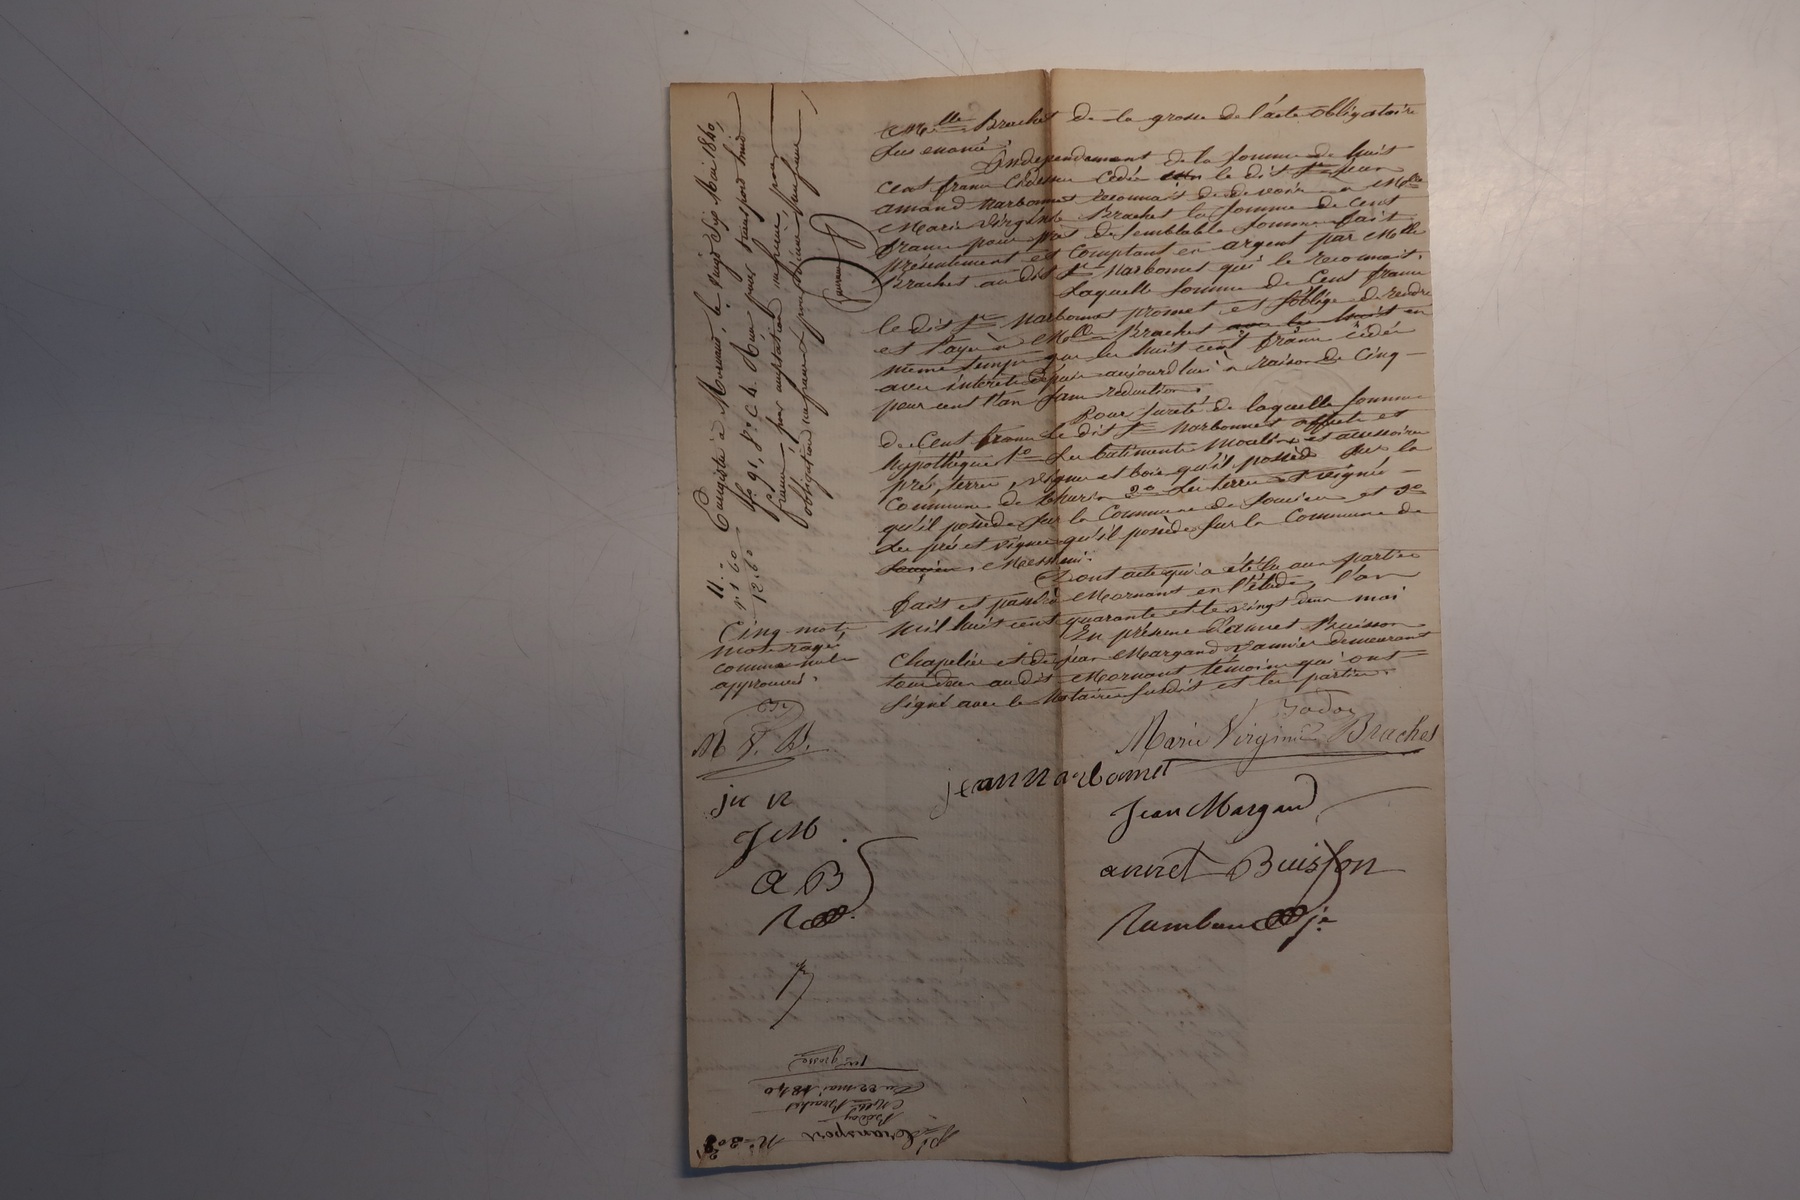 Melle Brachet de la grosse de l'acte obligatoire
sus enoncé.
Independamment de la somme de huit
cent francs cidessus cédée le dit Sr Jean
amand Narbonnet reconnait de devoir a Melle
Marie Virginie Brachet la somme de cent
francs pour prêt de semblable somme fait
présentement et comptant en argent par Melle
Brachet au dit Sr Narbonnet qui le reconnait.
Laquelle somme de Cent francs
le dit Sr Narbonnet promet et s'oblige de rendre
et payer à Melle Brachet en
même temps que les huit cent francs cédés
avec intérêts depuis aujourdhui à raison de Cinq
pour cent l'an sans réduction.
Pour sureté de laquelle somme
de Cent francs le dit Sr Narbonnet affecte et
hypothèque 1o Les batiments Moulins et accessoires
prés, terres, vignes et bois qu'il possède sur la
Commune de 2o Les terres et vignes
qu'il possède sur la Commune de Soucieu et 3o
Les prés et vignes qu'il possède sur la Commune de
Soucieu, Messimi.
Dont acte qui a été lu aux parties
fait et passé à Mornant en l'étude, l'an
Mil huit cent quarante et le vingt deux mai
En présence d'annet Buisson
Chapelier et de jean Margand vannier demeurant
tous deux au dit Mornant témoins qui ont
signé avec le Notaire susdit et les parties.
Marie Virginie Brachet
jean narbonnet
Jean Margand
annet Buisson
Rambaud je
Enregistré à Mornant, le vingt six Mai 1840,
fo. 91, Ro. C. 4. Reçu pour transport huit
francs, pour acceptation un franc pour
obligation un franc & pour décime un franc
11. -
1. 10
12. 10
Cinq mots
mots rayés
comme nuls
approuvés.
M V. B.
jn n
J M.
a B
R
No 308
Transport
Melle Brachet
Du 22 mai 1840
1ere grosse